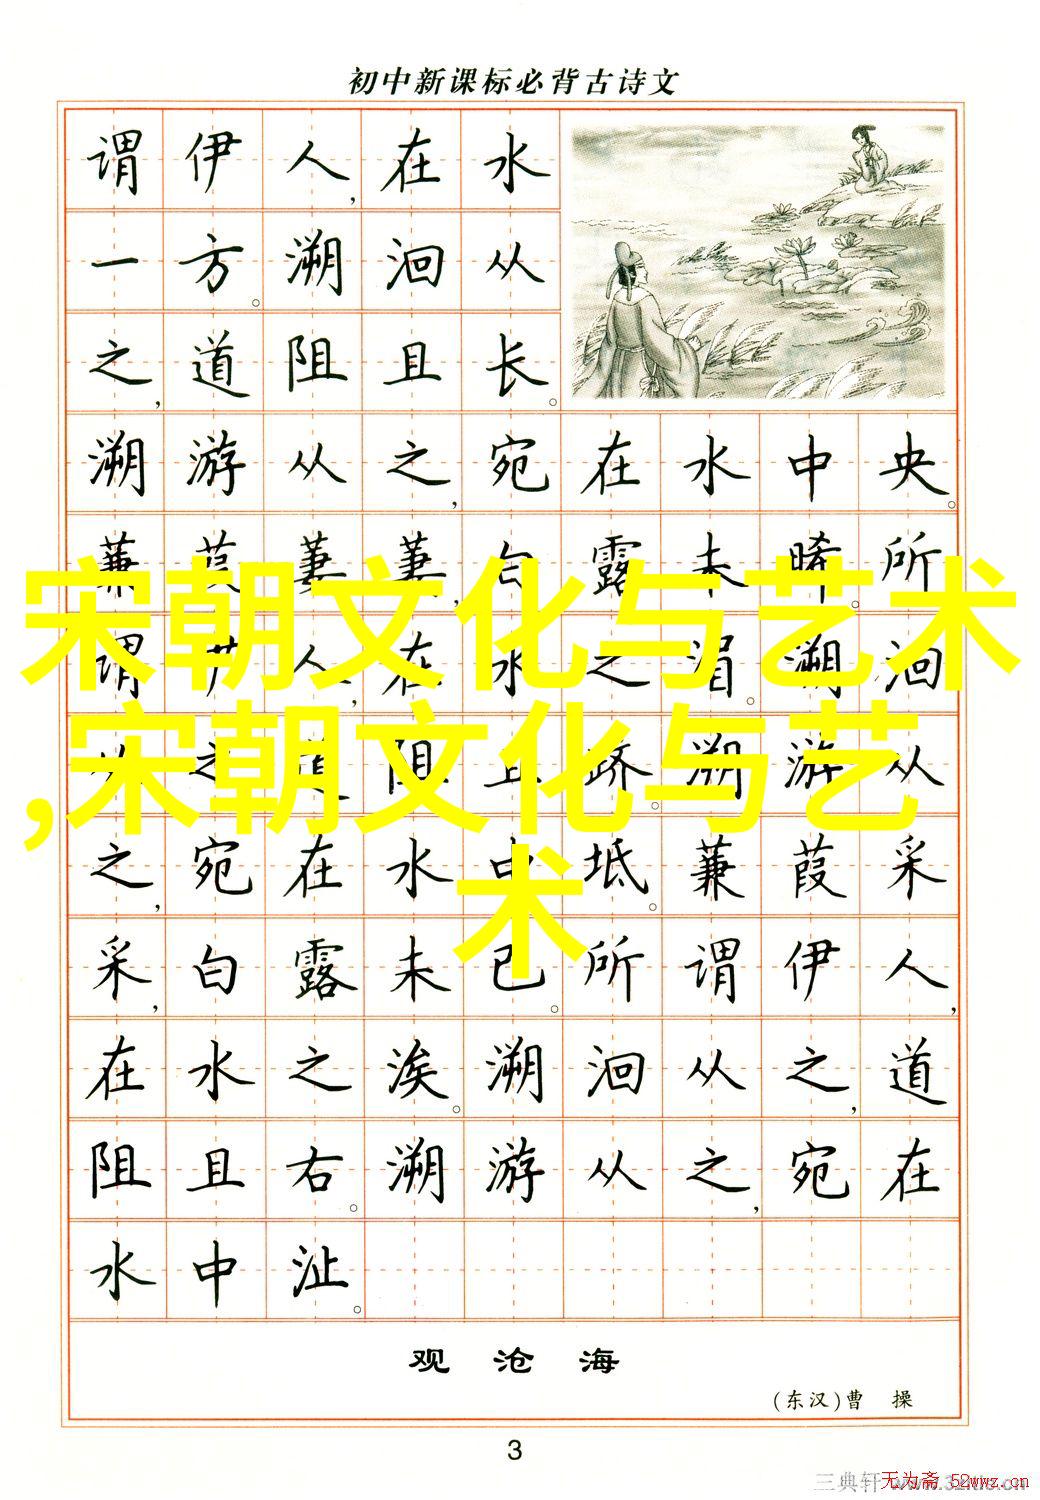 初中新课标必背古诗文
谓伊人，在水
一方。溯洄从
之，道阻且长。
溯游从之，宛在水中央。
蒹葭萋萋，白露未晞。所
谓伊人，在水之湄。溯洄
宋朝文化与艺术
从之，道阻且跻。溯游从
,宋朝文化与艺
之，宛在水中坻。蒹葭采
术
采，白露未已。所谓伊人，
在水之涘。溯洄从之，道
阻且右。溯游从之，宛在
水中沚。
观沧海
(东汉)曹 操
3
无为斋 52wwz.cn